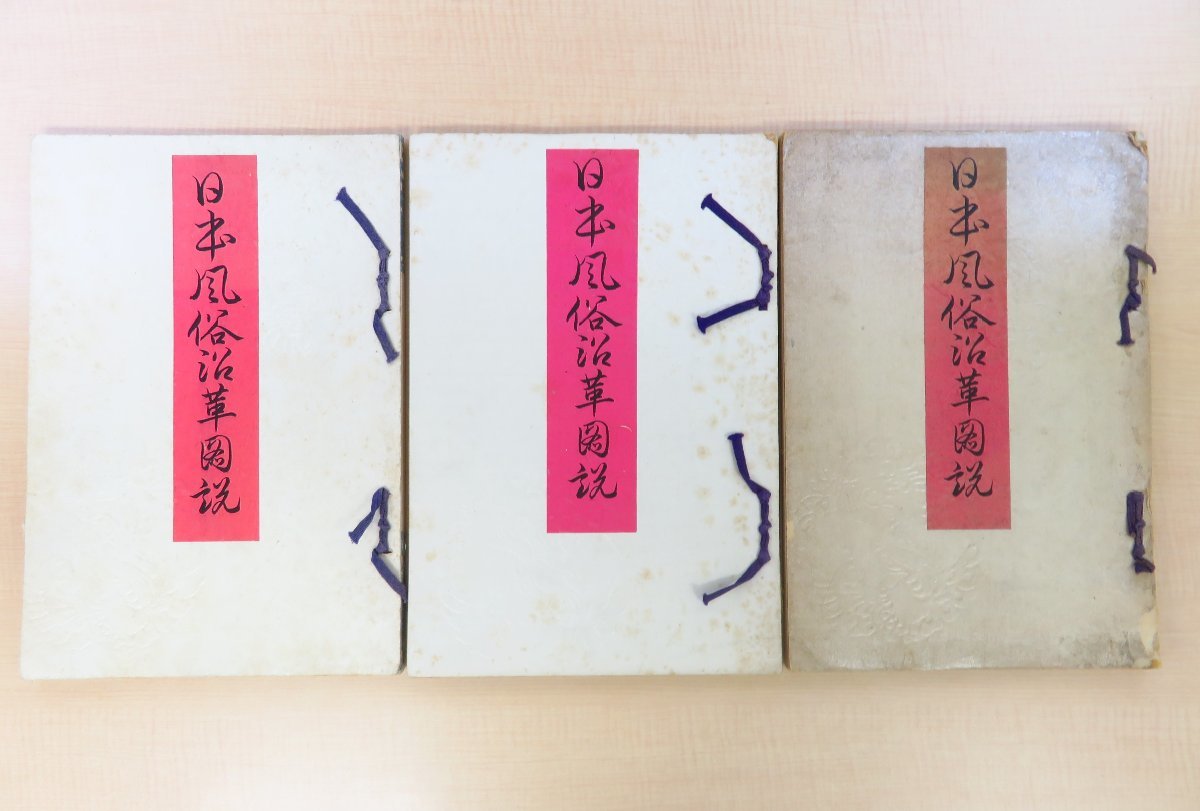 日本風俗沿革圖説
日本風俗沿革圖説
日本風俗沿革圖説